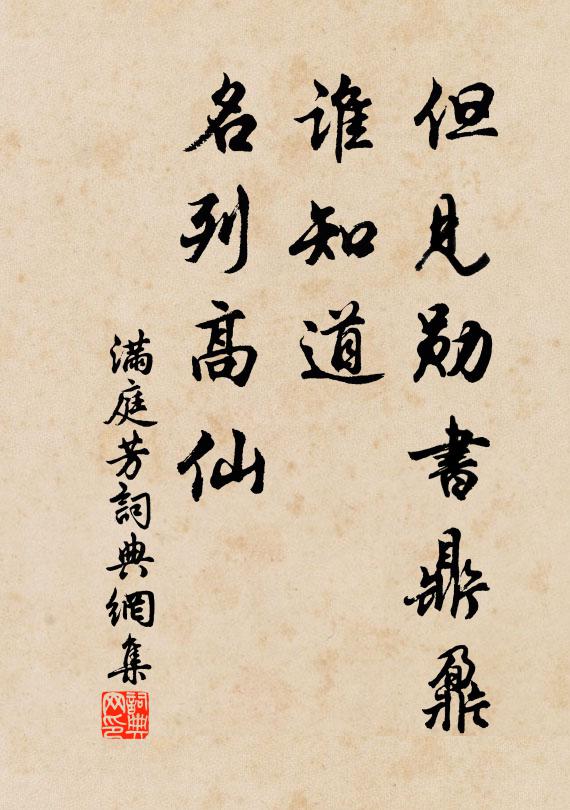 但見勛書鼎鼐
誰知道
名列高仙
滿庭芳詞典網集
詞典网印